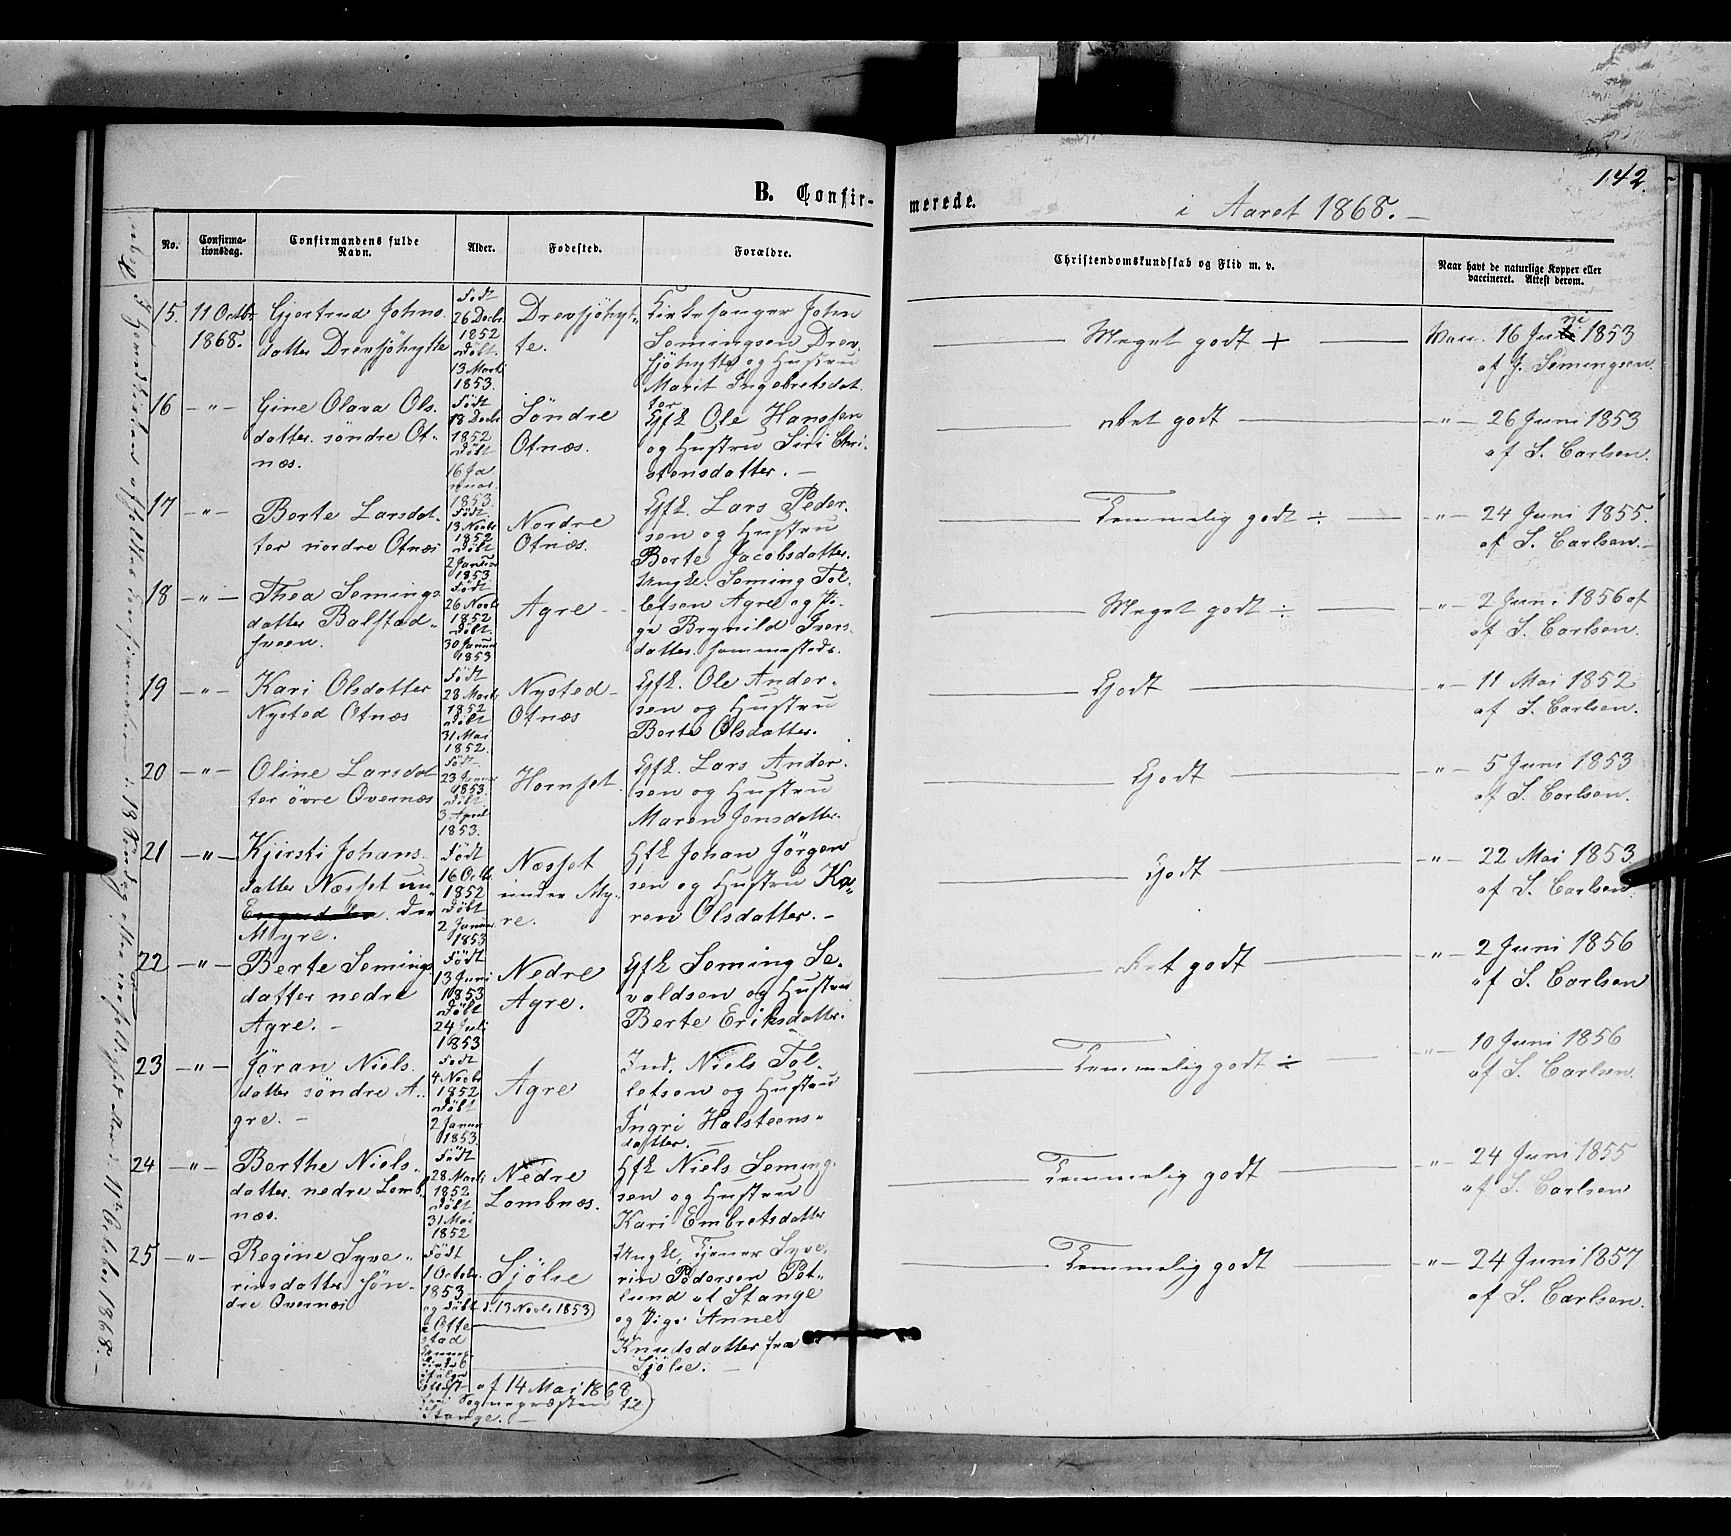 142.
B. Confir-
merede.
i Aaret 1868. —
No.
Confirma-
tionsdag.
Confirmandens fulde
Navn.
Alder.
Fødested.
Forældre.
Christendomskundskab og Flid m. v.
Naar havt de naturlige Kopper eller
vaccineret. Attest derom.
15.
11 Octbr
1868.
Gjertrud Johns-
datter Drevsjöhytte
Født
26 Decbr
1852
döbt
13 Marti
1853.
Drevsjöhyt-
te.
Kirkesanger John
Semingsen Drev
sjöhytte og Hustru
Marit Ingebretsdat
ter
Meget godt +
Vacc. 16 Juni 1853
af J. Semingsen.
16
— " —
Gine Olava Ols-
datter söndre Ot-
næs.
Født
18 Decbr
1852
döbt
16 Ja
nuar
1853
Söndre
Otnæs.
Gfk Ole Hanssen
og Hustru Siri Chri-
stensdatter. —
Ret godt
— " — 26 Juni 1853
af S. Carlsen.
17
— " —
Berte Larsdat-
ter nordre Otnæs
Født
13 Novbr
1852
Döbt
2 Januar
1853
Nordre
Otnæs.
Gfk. Lars Peder-
sen og Hustru
Berte Jacobsdatter.
Temmelig godt ÷
— " — 24 Juni 1855.
af S. Carlsen. —
18
— " —
Thea Semings-
datter Balstad-
sveen.
Født
26 Novbr
1852
Döbt
30 Januar
1853
Agre
Ungk. Seming Tol-
lefsen Agre og Pi-
ge Brynild Ivers-
datter sammesteds.
Meget godt ÷
— " — 2 Juni 1856 af
af S. Carlsen.
19
— " —
Kari Olsdatter
Nysted Otnæs
Født
28 Marti
1852
döbt
31 Mai
1852.
Nysted-
Otnæs
Gfk. Ole Ander-
sen og Hustru
Berte Olsdatter.
Godt
— " — 11 Mai 1852
af S. Carlsen.
20
— " —
Oline Larsdat
ter övre Overnæs
Født
23 Januar
1853.
döbt
3 April
1853.
Hornset.
Gfk. Lars Ander-
sen og Hustru
Maren Jensdatter.
Godt
— " — 5 Juni 1853
af S. Carlsen.
21
— " —
Kjersti Johans-
datter Næsset un-
der
Myre.
Født
16 Octbr
1852
Döbt
2 Januar
1853
Næsset
under My-
re.
Gfk Johan Jörgen
sen og Hustru Ka-
ren Olsdatter. —
Godt
— " — 22 Mai 1853.
af S. Carlsen
22
— " —
Berte Semings
datter nedre
Agre. —
Født
13 Juni
1853
Döbt
24 Juli
1853
Nedre
Agre.
Gfk Seming Se-
valdsen og Hustru
Berte Eriksdatter.
Ret godt
— " — 2 Juni 1856
af S. Carlsen
23
— " —
Jøran Niels-
datter söndre A-
gre. —
Født
4 Novbr
1852
döbt
2 Januar
1853.
Agre
Ind. Niels Tol-
lefsen og Hustru
Ingri Halsteens-
datter.
Temmelig godt ÷
— " — 10 Juni 1856
af S. Carlsen.
24
— " —
Berthe Niels-
datter nedre Lomb
næs.
Født
28 Marti
1852
döbt
31 Mai
1852
Nedre
Lombnæs.
Gfk Niels Seming-
sen og Hustru
Kari Embretsdatter
Temmelig godt
— " — 24 Juni 1855
af S. Carlsen
25
— " —
Regine Syve-
rinsdatter Søn-
dre Overnæs
Født
1 Octobr.
1853
og döbt d. 13 Novbr 1853
Otte
stad
Sjölie
Ungk. Tjener Syve-
rin Pedersen Pet-
lund at Stange
og Pige Anne
Knudsdatter fra
Sjölie. —
af 14 Mai 1868
Sognepræsten til
Stange. —
Temmelig godt
— " — 24 Juni 1857
af S. Carlsen.